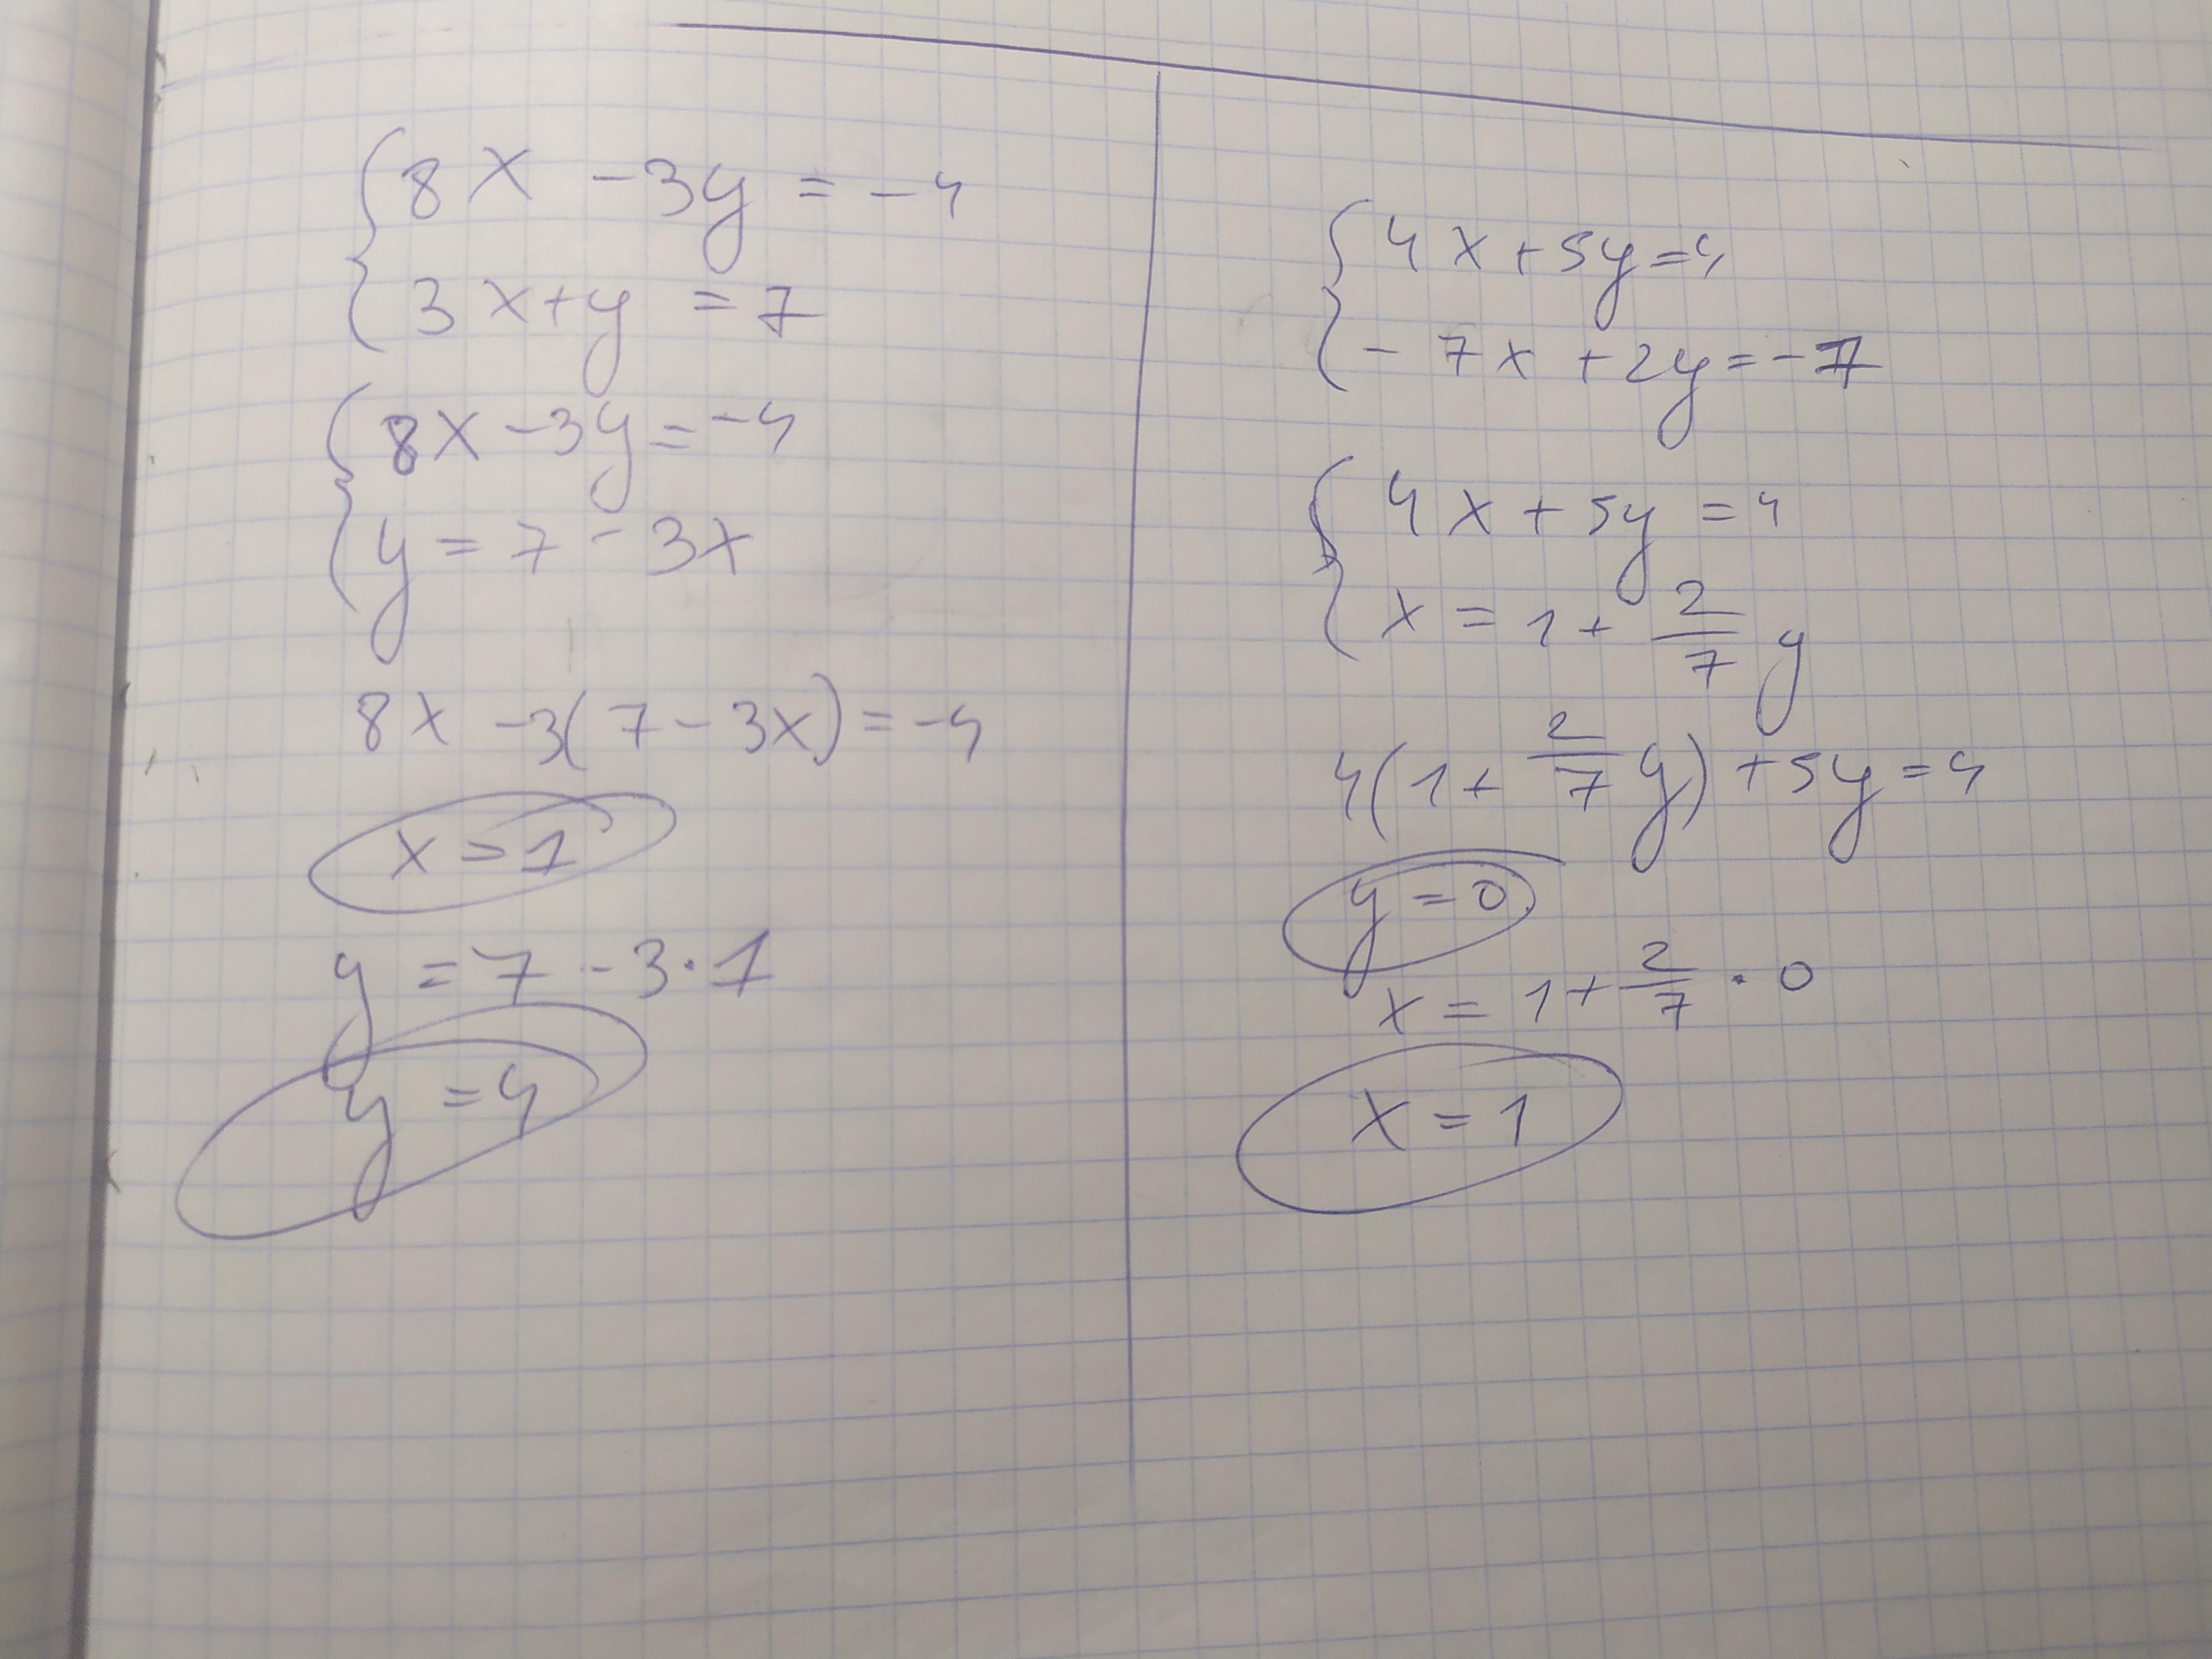 8x -3y = -4
3x+y = 7
8x -3y = -4
y = 7 - 3x
8x -3(7 - 3x) = -4
x = 1
y = 7 - 3·1
y = 4
4x+5y=4
- 7x +2y=-7
4x + 5y = 4
x = 1 + 2/7 y
4(1+ 2/7 y) +5y = 4
y = 0
x = 1 + 2/7 · 0
x = 1